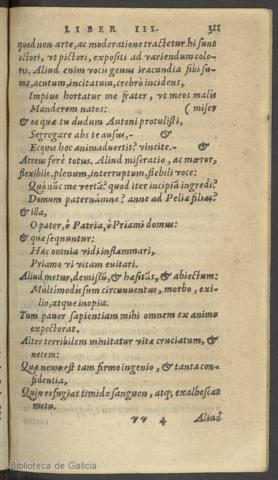 LIBER III. 311
quod non arte, ac moderatione tractetur. hi sunt
ictori, vt pictori, expositi ad variendum colo-
res. Aliud enim vocis genus iracundia sibi su-
me, acutum, incitatum, crebrò incidens,
Impius hortatur me frater, vt meos malis
Manderem natos: ( miser
& ea quæ tu dudum Antoni protulisti,
Segregare abs te ausus,- &
Ecquis hoc animaduertit? vincite.- &
Atreus ferè totus. Aliud miseratio, ac mœror,
flexibile, plenum, interruptum, flebili voce:
Quò nūc me vertā? quod iter incipiā ingredi?
Domum paternamne? anne ad Peliæ filias?
& illa,
O pater, ô Patria, ô Priami domus:
& quæ sequuntur:
Hæc omnia vidi inflammari,
Priamo vi vitam euitari.
Aliud metus, demissū, & hæsitās, & abiectum:
Multimodis sum circunuentus, morbo, exi-
lio, atque inopia.
Tum pauor sapientiam mihi omnem ex animo
expectorat.
Alter terribilem minitatur vitæ cruciatum, &
necem:
Quæ nemo est tam firmo ingenio, & tanta con-
fidentia,
Quin refugiat timido sanguen, atq; exalbescat
metu.
vv 4 Aliud
Biblioteca de Galicia